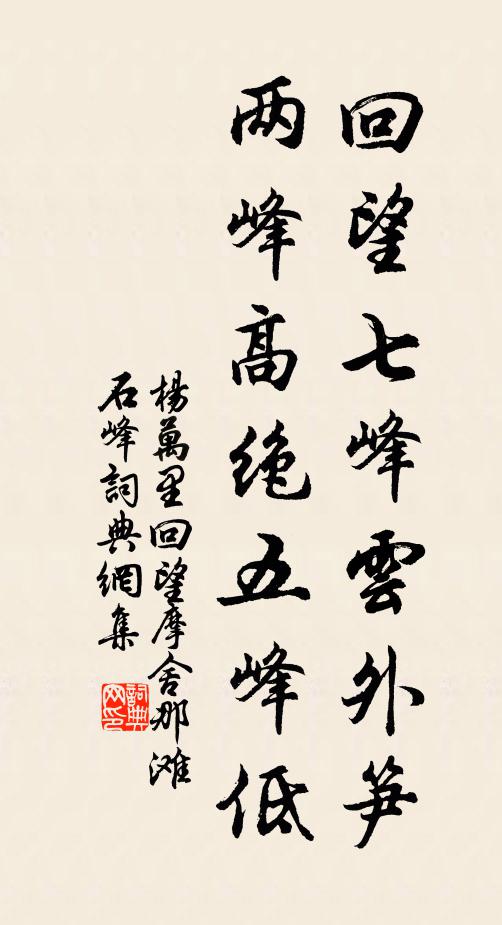 回望七峰雲外笋
两峰高绝五峰低
楊萬里回望摩舍那滩
石峰詞典網集
詞典
网印